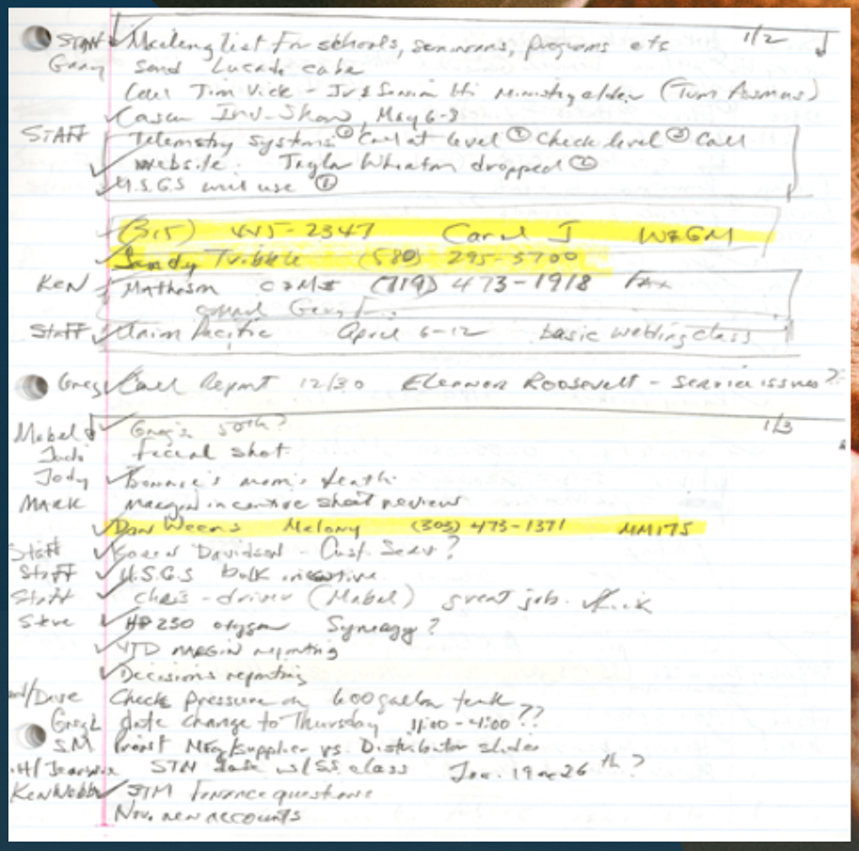 STAFF Mailing list for schools, seminars, programs etc 1/2
Gary send Lucade cake
Call Tim Vick - Jr & Senior Hi Ministry elder (Tom Rasmus)
Casen Inv-Show, May 6-8
STAFF Telemetry systems ① Call at level ② Check level ③ Call
website. Taylor Wharton dropped ②
U.S.G.S will use ①
(315) 445-2347 Carol J W&GM
Sandy Tribble (580) 295-3700
KEN Matheson (719) 473-1918 Fax
Staff Union Pacific April 6-12 basic welding class
Greg Call Report 12/30 Eleanor Roosevelt - service issues?
1/3
Mabel Greg's 50th?
Judi Facial shot
Jody Bonnie's mom's death
MARK Margin incentive sheet review
Dan Weens Melony (303) 473-1371 MM175
Staff Karen Davidson - Cust. Serv?
Staff U.S.G.S bulk incentive
Staff Chris - driver (Mabel) great job.
Steve HP 230 oxygen Synergy?
YTD MARGIN reporting
Decisions reporting
/Dave Check pressure on 600 gallon tank
GregL date change to Thursday 11:00 - 4:00??
SM Mfg/Supplier vs. Distributor slides
STM date w/SS class Jan. 19 or 26th?
Ken Webb STM finance questions
Nov. new accounts